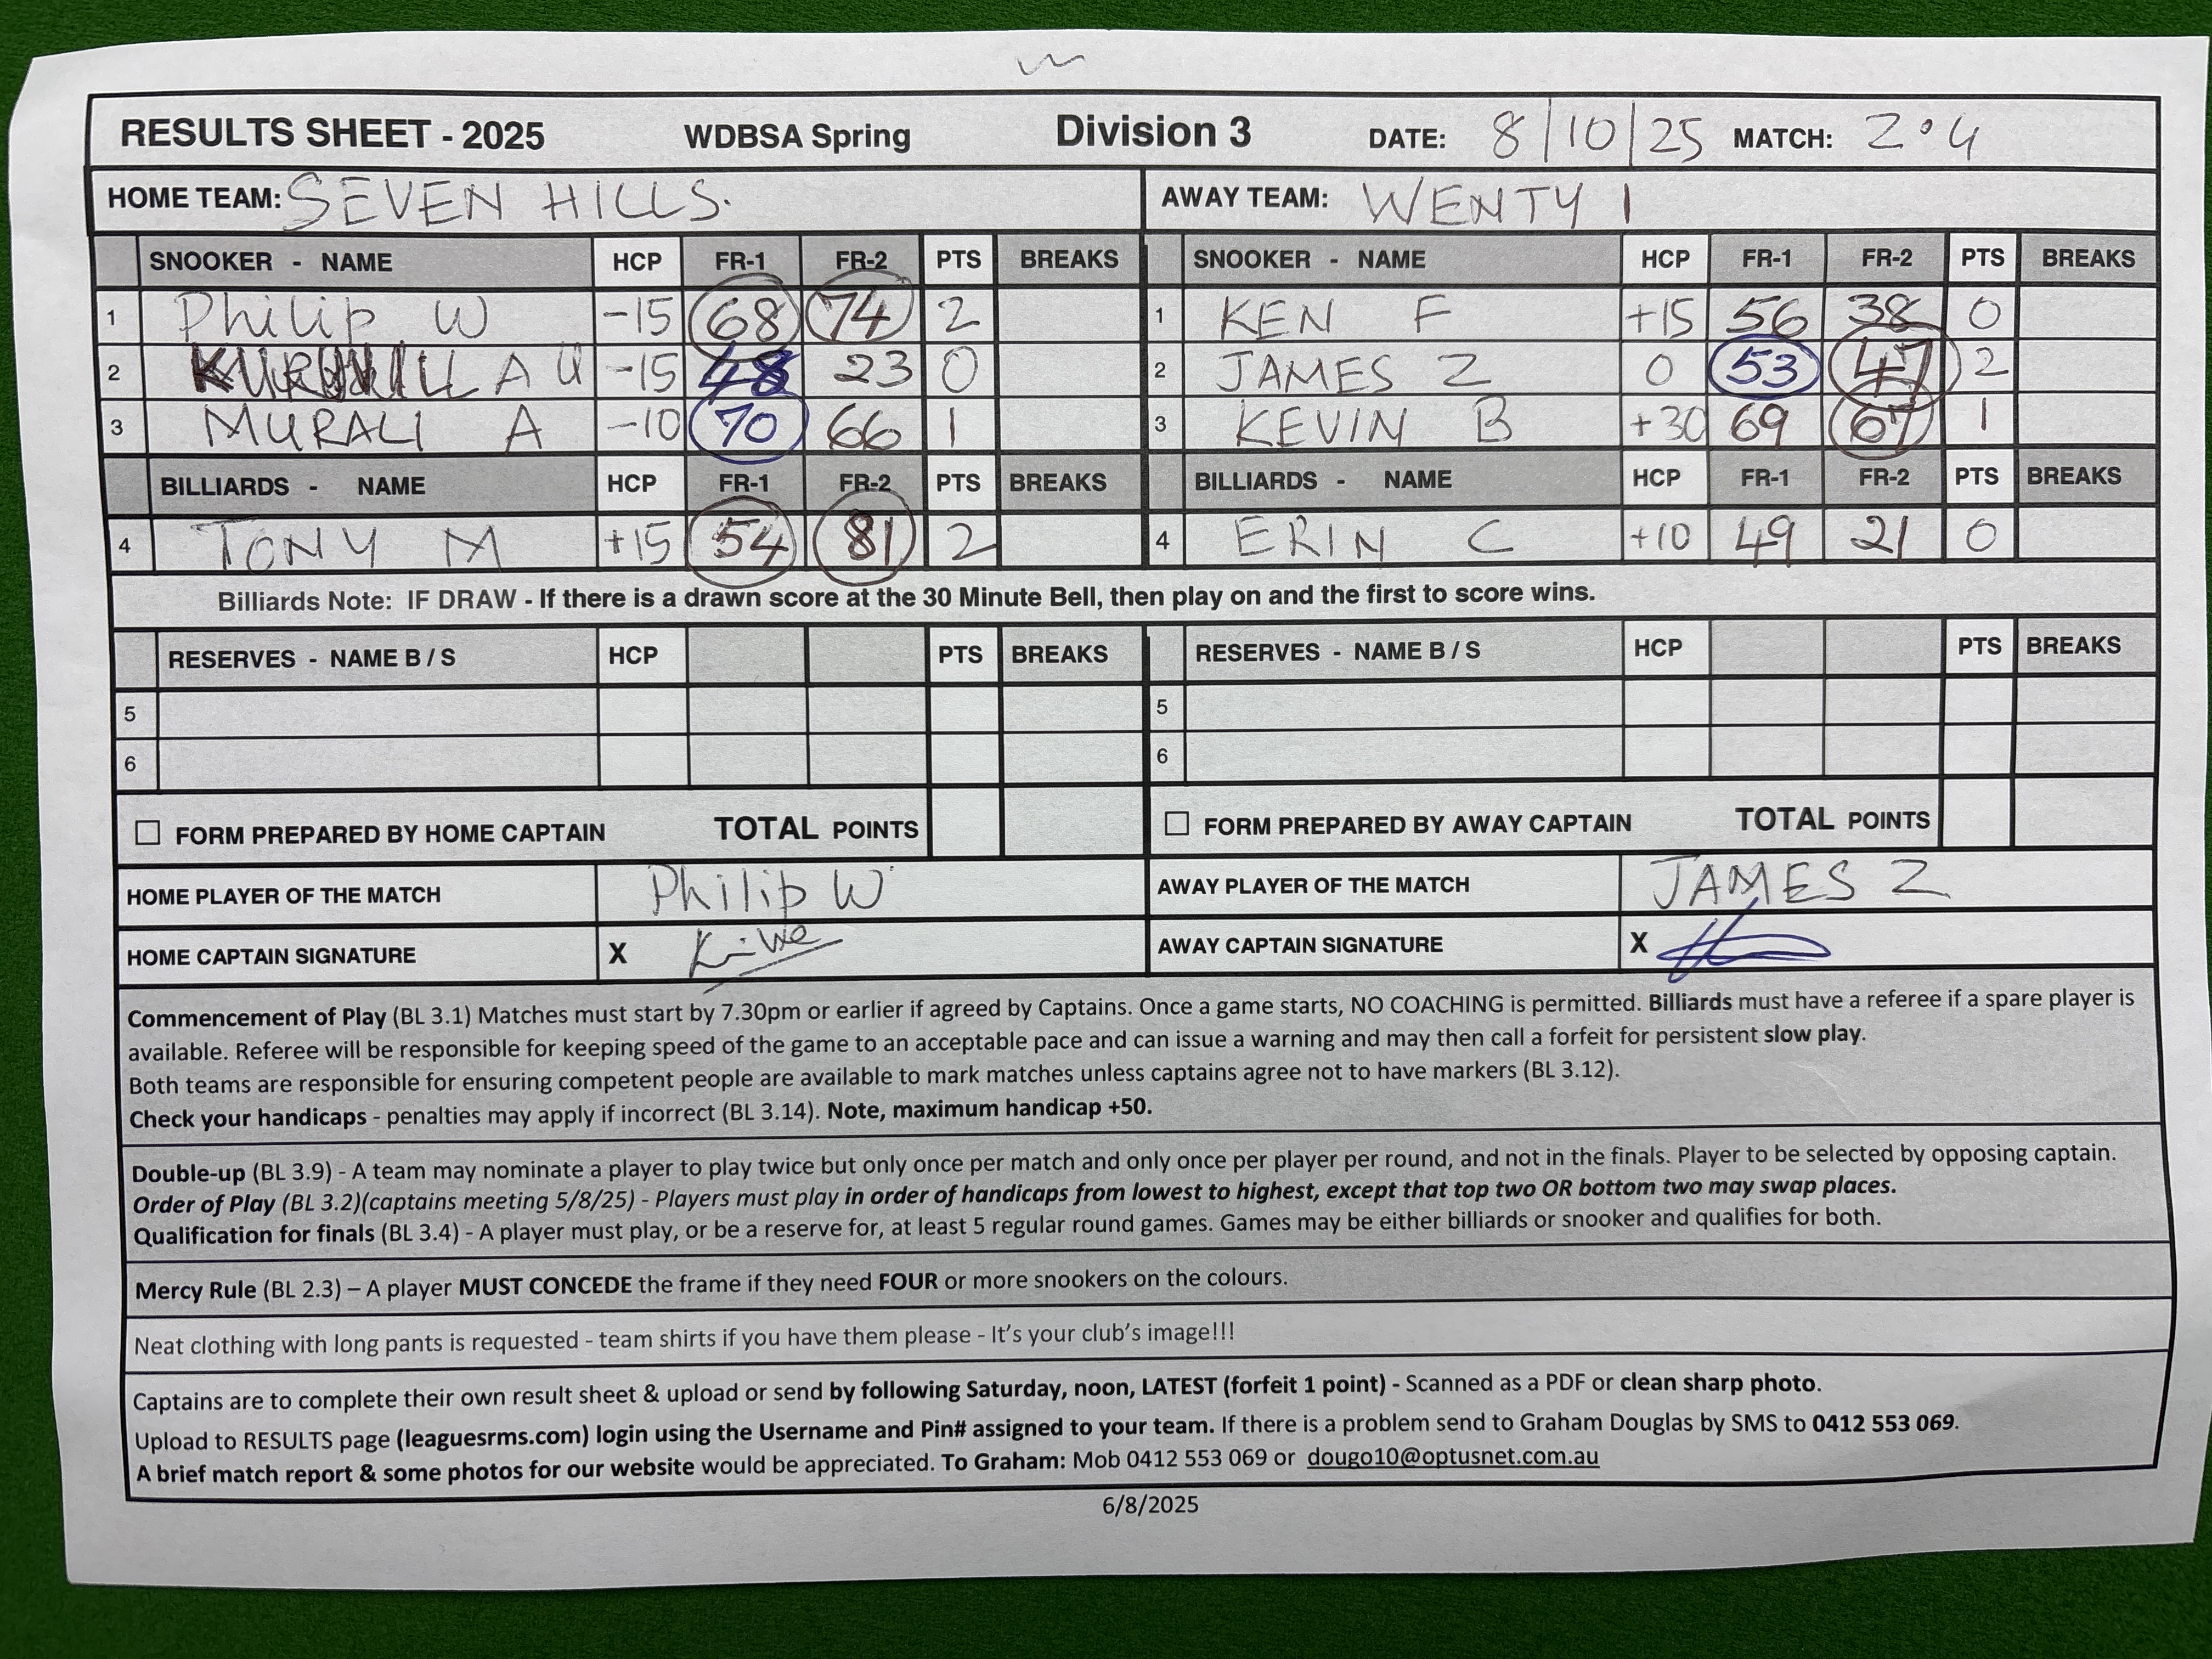 RESULTS SHEET - 2025 WDBSA Spring Division 3 DATE: 8/10/25 MATCH: 2.4
HOME TEAM: SEVEN HILLS. AWAY TEAM: WENTY 1
SNOOKER - NAME HCP FR-1 FR-2 PTS BREAKS SNOOKER - NAME HCP FR-1 FR-2 PTS BREAKS
1 Philip W -15 68 74 2 1 KEN F +15 56 38 0
2 A U -15 48 23 0 2 JAMES Z 0 53 47 2
3 MURALI A -10 70 66 1 3 KEVIN B +30 69 67 1
BILLIARDS - NAME HCP FR-1 FR-2 PTS BREAKS BILLIARDS - NAME HCP FR-1 FR-2 PTS BREAKS
4 TONY M +15 54 81 2 4 ERIN C +10 49 21 0
Billiards Note: IF DRAW - If there is a drawn score at the 30 Minute Bell, then play on and the first to score wins.
RESERVES - NAME B / S HCP PTS BREAKS RESERVES - NAME B / S HCP PTS BREAKS
5 5
6 6
☐ FORM PREPARED BY HOME CAPTAIN TOTAL POINTS ☐ FORM PREPARED BY AWAY CAPTAIN TOTAL POINTS
HOME PLAYER OF THE MATCH Philip W AWAY PLAYER OF THE MATCH JAMES Z
HOME CAPTAIN SIGNATURE X AWAY CAPTAIN SIGNATURE X
Commencement of Play (BL 3.1) Matches must start by 7.30pm or earlier if agreed by Captains. Once a game starts, NO COACHING is permitted. Billiards must have a referee if a spare player is
available. Referee will be responsible for keeping speed of the game to an acceptable pace and can issue a warning and may then call a forfeit for persistent slow play.
Both teams are responsible for ensuring competent people are available to mark matches unless captains agree not to have markers (BL 3.12).
Check your handicaps - penalties may apply if incorrect (BL 3.14). Note, maximum handicap +50.
Double-up (BL 3.9) - A team may nominate a player to play twice but only once per match and only once per player per round, and not in the finals. Player to be selected by opposing captain.
Order of Play (BL 3.2)(captains meeting 5/8/25) - Players must play in order of handicaps from lowest to highest, except that top two OR bottom two may swap places.
Qualification for finals (BL 3.4) - A player must play, or be a reserve for, at least 5 regular round games. Games may be either billiards or snooker and qualifies for both.
Mercy Rule (BL 2.3) – A player MUST CONCEDE the frame if they need FOUR or more snookers on the colours.
Neat clothing with long pants is requested - team shirts if you have them please - It's your club's image!!!
Captains are to complete their own result sheet & upload or send by following Saturday, noon, LATEST (forfeit 1 point) - Scanned as a PDF or clean sharp photo.
Upload to RESULTS page (leaguesrms.com) login using the Username and Pin# assigned to your team. If there is a problem send to Graham Douglas by SMS to 0412 553 069.
A brief match report & some photos for our website would be appreciated. To Graham: Mob 0412 553 069 or dougo10@optusnet.com.au
6/8/2025